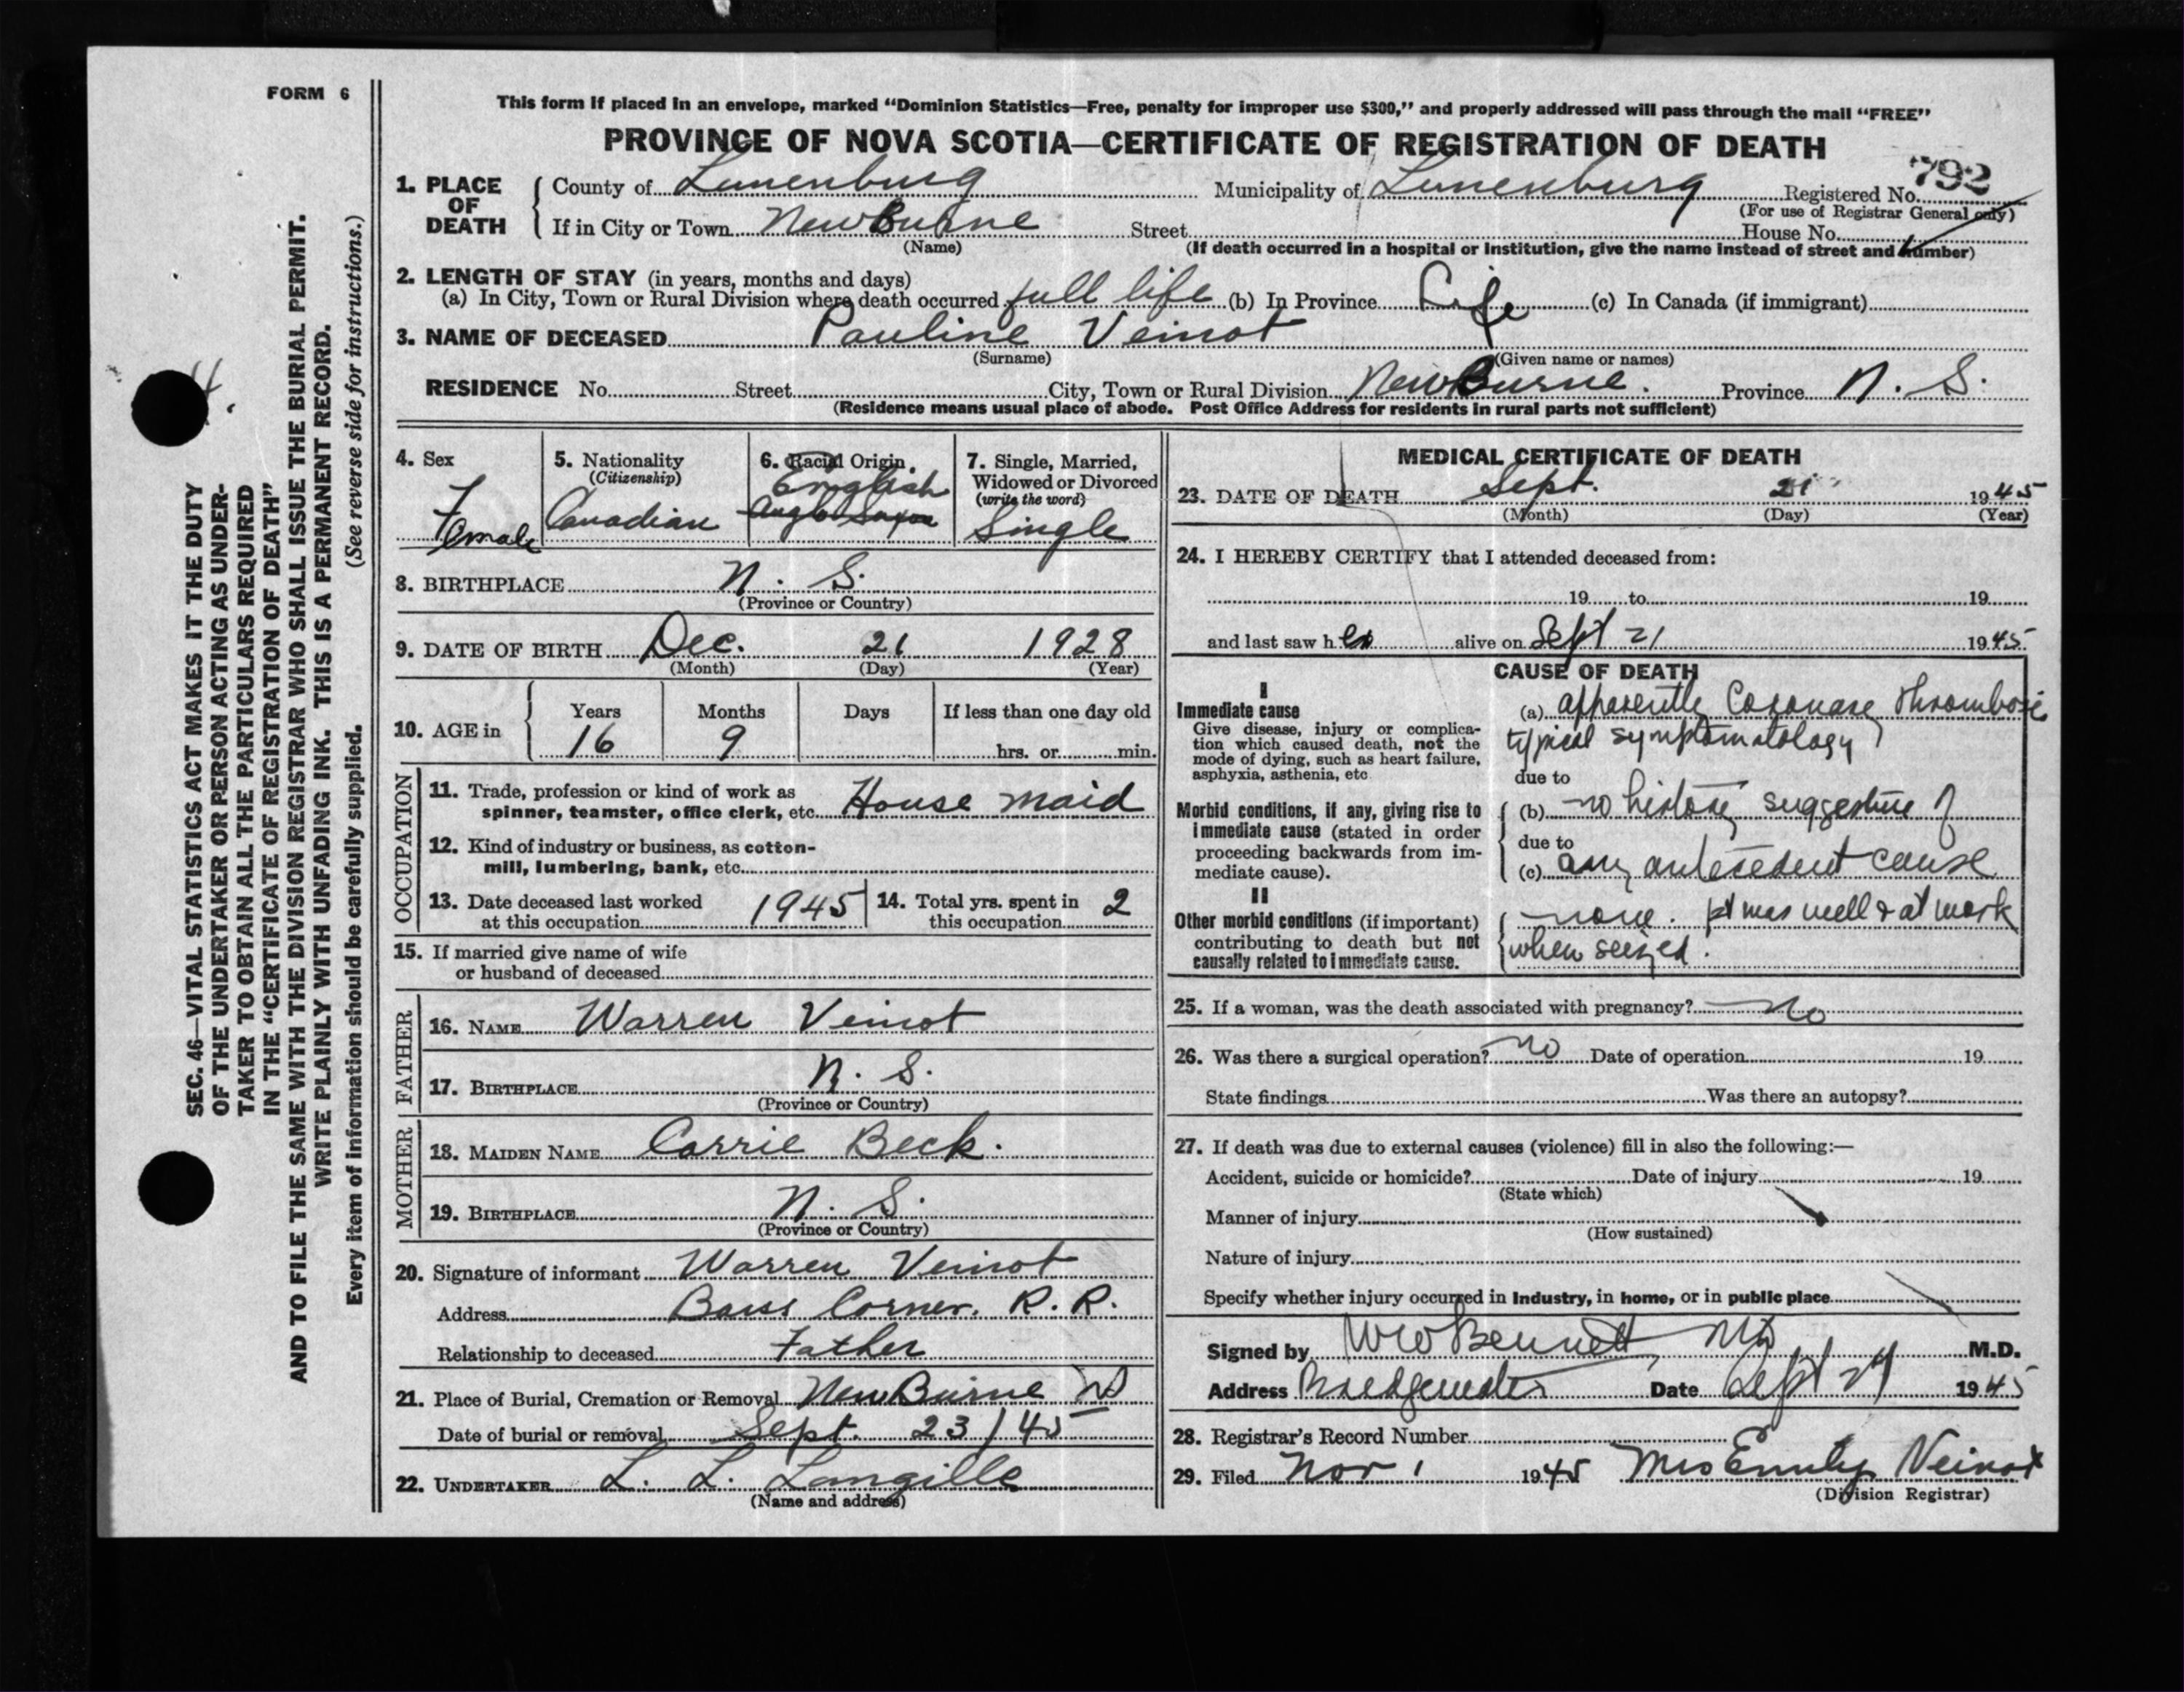 FORM 6
This form if placed in an envelope, marked "Dominion Statistics—Free, penalty for improper use $300," and properly addressed will pass through the mail "FREE"
PROVINCE OF NOVA SCOTIA—CERTIFICATE OF REGISTRATION OF DEATH
792
1. PLACE OF DEATH County of Lunenburg Municipality of Lunenburg Registered No.
(For use of Registrar General only)
If in City or Town New Burne Street House No.
(Name) (If death occurred in a hospital or institution, give the name instead of street and number)
2. LENGTH OF STAY (in years, months and days)
(a) In City, Town or Rural Division where death occurred full life (b) In Province Life (c) In Canada (if immigrant)
3. NAME OF DECEASED Pauline Veinot
(Surname) (Given name or names)
RESIDENCE No. Street City, Town or Rural Division New Burne. Province N. S.
(Residence means usual place of abode. Post Office Address for residents in rural parts not sufficient)
4. Sex Female
5. Nationality
(Citizenship)
Canadian
6. Racial Origin
English
Anglo Saxon
7. Single, Married,
Widowed or Divorced
(write the word)
Single
8. BIRTHPLACE N. S.
(Province or Country)
9. DATE OF BIRTH Dec. 21 1928
(Month) (Day) (Year)
10. AGE in Years Months Days If less than one day old
16 9 hrs. or min.
OCCUPATION
11. Trade, profession or kind of work as
spinner, teamster, office clerk, etc. House maid
12. Kind of industry or business, as cotton-
mill, lumbering, bank, etc.
13. Date deceased last worked
at this occupation 1945
14. Total yrs. spent in
this occupation 2
15. If married give name of wife
or husband of deceased
FATHER
16. NAME Warren Veinot
17. BIRTHPLACE N. S.
(Province or Country)
MOTHER
18. MAIDEN NAME Carrie Beck.
19. BIRTHPLACE N. S.
(Province or Country)
20. Signature of informant Warren Veinot
Address Barss Corner. R. R.
Relationship to deceased Father
21. Place of Burial, Cremation or Removal New Burne
Date of burial or removal Sept. 23/45
22. UNDERTAKER L. L. Langille
(Name and address)
MEDICAL CERTIFICATE OF DEATH
23. DATE OF DEATH Sept. 21 1945
(Month) (Day) (Year)
24. I HEREBY CERTIFY that I attended deceased from:
19 to 19
and last saw her alive on Sept 21 1945
CAUSE OF DEATH
I
Immediate cause
Give disease, injury or complica-
tion which caused death, not the
mode of dying, such as heart failure,
asphyxia, asthenia, etc
(a) apparently Coronary Thrombosis
typical symptomatology
due to
Morbid conditions, if any, giving rise to
immediate cause (stated in order
proceeding backwards from im-
mediate cause).
(b) no history suggestive of
due to
(c) any antecedent cause
II
Other morbid conditions (if important)
contributing to death but not
causally related to immediate cause.
none. pt was well & at work
when seized.
25. If a woman, was the death associated with pregnancy? No
26. Was there a surgical operation? no Date of operation 19
State findings Was there an autopsy?
27. If death was due to external causes (violence) fill in also the following:—
Accident, suicide or homicide? Date of injury 19
(State which)
Manner of injury
(How sustained)
Nature of injury
Specify whether injury occurred in industry, in home, or in public place
Signed by W W Bennett, MD M.D.
Address Bridgewater Date Sept 24 1945
28. Registrar's Record Number
29. Filed Nov 1 1945 Mrs Emily Veinot
(Division Registrar)
SEC. 46—VITAL STATISTICS ACT MAKES IT THE DUTY
OF THE UNDERTAKER OR PERSON ACTING AS UNDER-
TAKER TO OBTAIN ALL THE PARTICULARS REQUIRED
IN THE "CERTIFICATE OF REGISTRATION OF DEATH"
AND TO FILE THE SAME WITH THE DIVISION REGISTRAR WHO SHALL ISSUE THE BURIAL PERMIT.
WRITE PLAINLY WITH UNFADING INK. THIS IS A PERMANENT RECORD.
Every item of information should be carefully supplied. (See reverse side for instructions.)